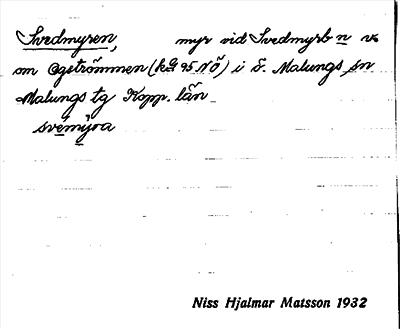 Svedmyren, myr vid Svedmyrb n v
om Ogströmmen (kG 95 NÖ) i S. Malungs sn
Malungs tg Kopp. län
svemyra
Niss Hjalmar Matsson 1932